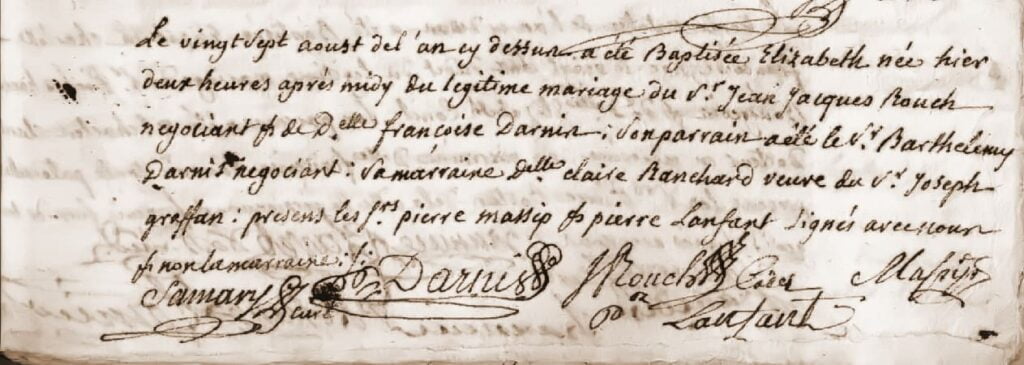 Le vingt sept aoust del'an cy dessus a été Baptisée Elizabeth née hier
deux heures aprés midy du legitime mariage du Sr. Jean Jacques Rouch
negociant & de Delle françoise Darnis : Son parrain a été le Sr. Barthelemy
Darnis negociant : Sa marraine Delle claire Ranchard veuve du Sr. Joseph
graffan : presens les Srs pierre massip & pierre Lanfant signés avec nous
& non la marraine :
Samary curé Darnis JJRouch Massip
Lanfant